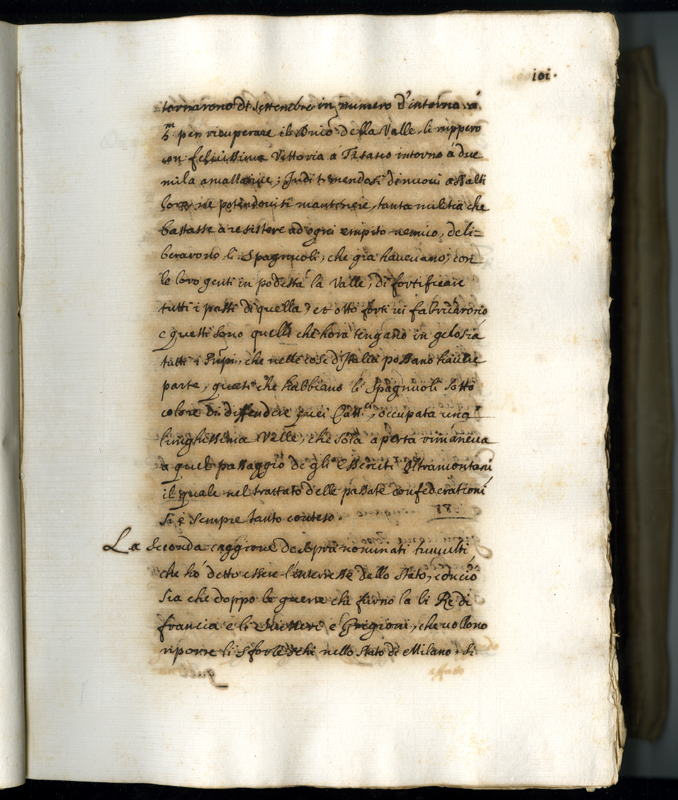 101.
tornarono di settembre in numero d'intorno à
5.m per ricuperare il Bnico della Valle, li ruppero
con felicissima Vittoria a Tirano intorno à due
mila amallatine; Indi temendosi di nuovi assalti
ne potendovisi mantenere, tanta militia che
bastasse à resistere ad ogni empito nemico, deli-
berarono li Spagnuoli, che già haueuano, con
le loro genti in podestà la Valle, di fortificare
tutti i passi di quella, et otto forti ui fabricarono
e questi sono quelli che hora tengano in gelosia
tutti i Prīpi, che nelle cose d'Italia possano hauere
parte, quasi che habbiano li Spagnuoli sotto
colore di diffendere quei Catt.ci, occupata una
lunghissima Valle, che sola aperta rimaneua
a quel passaggio de gli esserciti Oltramontani
il quale nel trattato delle passate confederationi
si è sempre tanto conteso.
La seconda caggione de sopra nominati tumulti
che ho detto essere l'interesse dello stato, concio
sia che doppo le guerre che furno la li Re di
francia e li Suizzeri e Grigioni, che uollono
riporre li Sforzeschi nello Stato di Milano, si